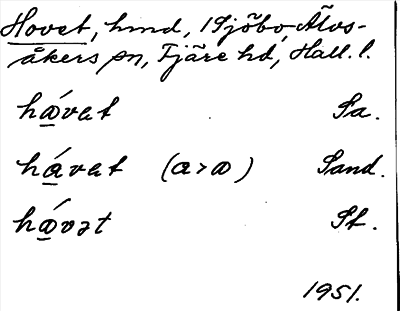 Hovet, hmd, 1 Sjöbo, Älvs-
åkers sn, Fjäre hd, Hall. l.
hǻvat Sa.
hávat (a>å) Sand.
hǻvət St.
1951.